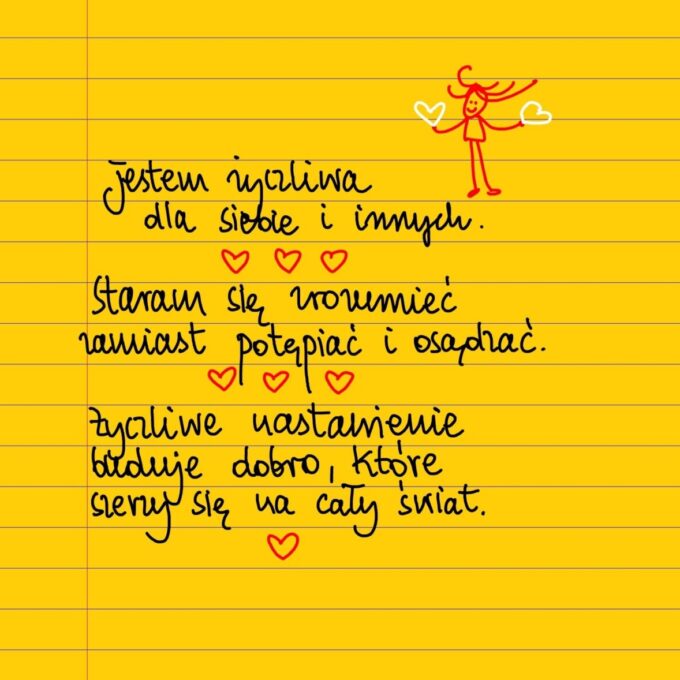 jestem życzliwa
dla siebie i innych.
Staram się zrozumieć
zamiast potępiać i osądzać.
Życzliwe nastawienie
buduje dobro, które
szerzy się na cały świat.